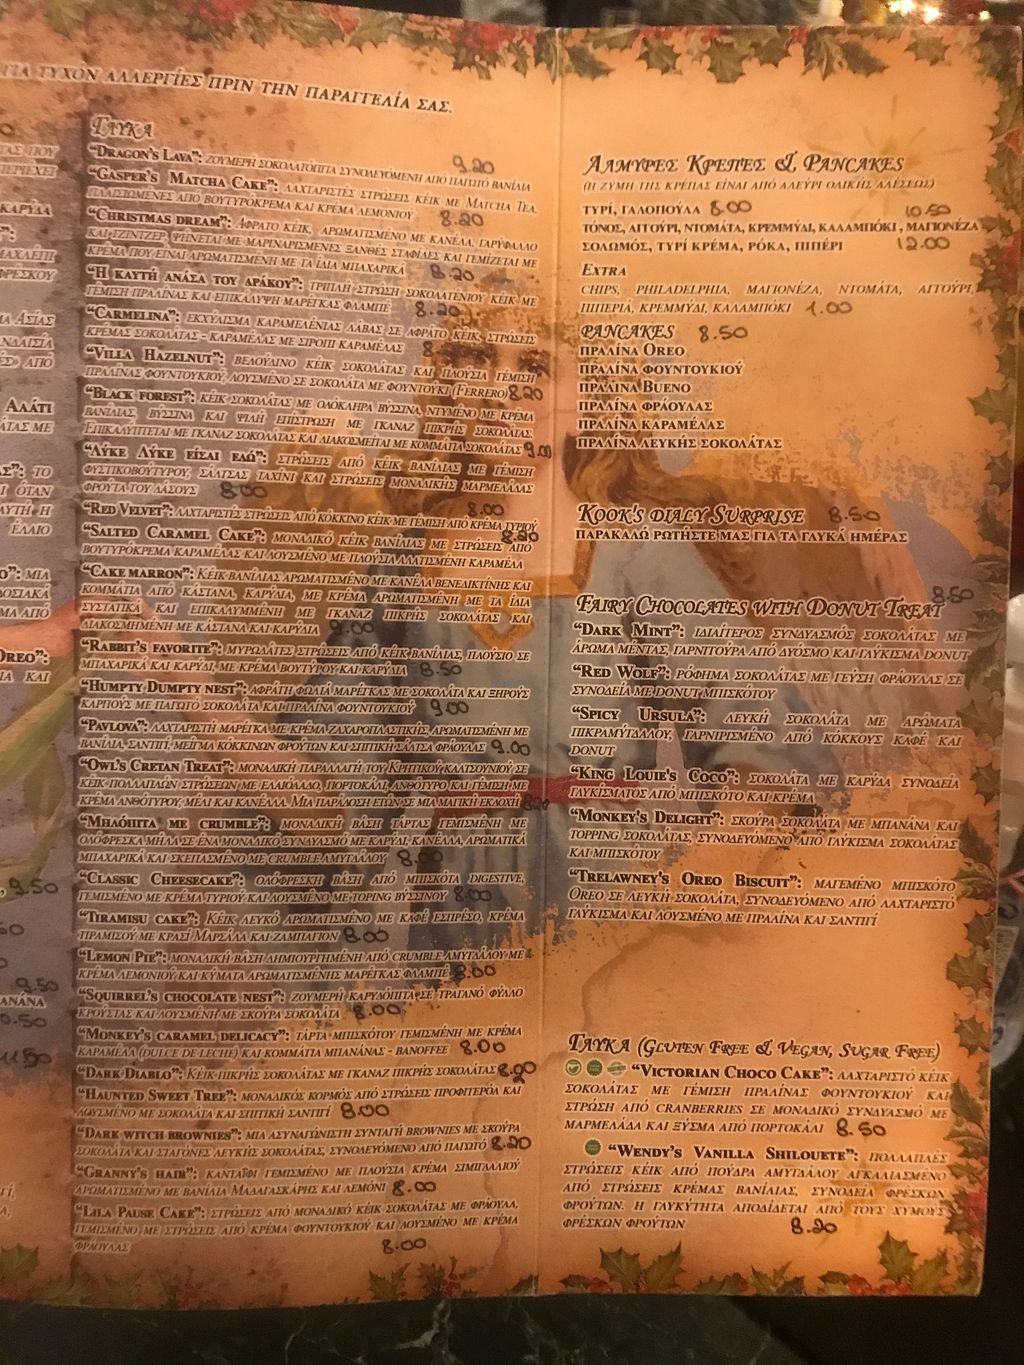 ΓΙΑ ΤΥΧΟΝ ΑΛΛΕΡΓΙΕΣ ΠΡΙΝ ΤΗΝ ΠΑΡΑΓΓΕΛΙΑ ΣΑΣ.
ΓΛΥΚΑ
"DRAGON'S LAVA": ΖΟΥΜΕΡΗ ΣΟΚΟΛΑΤΟΠΙΤΑ ΣΥΝΟΔΕΥΟΜΕΝΗ ΑΠΟ ΠΑΓΩΤΟ ΒΑΝΙΛΙΑ 9.20
"GASPER'S MATCHA CAKE": ΛΑΧΤΑΡΙΣΤΕΣ ΣΤΡΩΣΕΙΣ ΚΕΪΚ ΜΕ MATCHA TEA,
ΠΛΑΙΣΙΩΜΕΝΕΣ ΑΠΟ ΒΟΥΤΥΡΟΚΡΕΜΑ ΚΑΙ ΚΡΕΜΑ ΛΕΜΟΝΙΟΥ 8.20
"CHRISTMAS DREAM": ΑΦΡΑΤΟ ΚΕΪΚ, ΑΡΩΜΑΤΙΣΜΕΝΟ ΜΕ ΚΑΝΕΛΑ, ΓΑΡΥΦΑΛΛΟ
ΚΑΙ ΤΖΙΝΤΖΕΡ, ΨΗΝΕΤΑΙ ΜΕ ΜΑΡΙΝΑΡΙΣΜΕΝΕΣ ΞΑΝΘΕΣ ΣΤΑΦΙΔΕΣ ΚΑΙ ΓΕΜΙΖΕΤΑΙ ΜΕ
ΚΡΕΜΑ ΠΟΥ ΕΙΝΑΙ ΑΡΩΜΑΤΙΣΜΕΝΗ ΜΕ ΤΑ ΙΔΙΑ ΜΠΑΧΑΡΙΚΑ 8.20
"Η ΚΑΥΤΗ ΑΝΑΣΑ ΤΟΥ ΔΡΑΚΟΥ": ΤΡΙΠΛΗ ΣΤΡΩΣΗ ΣΟΚΟΛΑΤΕΝΙΟΥ ΚΕΪΚ ΜΕ
ΓΕΜΙΣΗ ΠΡΑΛΙΝΑΣ ΚΑΙ ΕΠΙΚΑΛΥΨΗ ΜΑΡΕΓΚΑΣ ΦΛΑΜΠΕ 8.20
"CARMELINA": ΕΚΧΥΛΙΣΜΑ ΚΑΡΑΜΕΛΕΝΙΑΣ ΛΑΒΑΣ ΣΕ ΑΦΡΑΤΟ ΚΕΪΚ, ΣΤΡΩΣΕΙΣ
ΚΡΕΜΑΣ ΣΟΚΟΛΑΤΑΣ - ΚΑΡΑΜΕΛΑΣ ΜΕ ΣΙΡΟΠΙ ΚΑΡΑΜΕΛΑΣ
"VILLA HAZELNUT": ΒΕΛΟΥΔΙΝΟ ΚΕΪΚ ΣΟΚΟΛΑΤΑΣ ΚΑΙ ΠΛΟΥΣΙΑ ΓΕΜΙΣΗ
ΠΡΑΛΙΝΑΣ ΦΟΥΝΤΟΥΚΙΟΥ, ΛΟΥΣΜΕΝΟ ΣΕ ΣΟΚΟΛΑΤΑ ΜΕ ΦΟΥΝΤΟΥΚΙ (FERRERO) 8.20
"BLACK FOREST": ΚΕΪΚ ΣΟΚΟΛΑΤΑΣ ΜΕ ΟΛΟΚΛΗΡΑ ΒΥΣΣΙΝΑ, ΝΤΥΜΕΝΟ ΜΕ ΚΡΕΜΑ
ΒΑΝΙΛΙΑΣ, ΒΥΣΣΙΝΑ ΚΑΙ ΨΙΛΗ ΕΠΙΣΤΡΩΣΗ ΜΕ ΓΚΑΝΑΖ ΠΙΚΡΗΣ ΣΟΚΟΛΑΤΑΣ.
ΕΠΙΚΑΛΥΠΤΕΤΑΙ ΜΕ ΓΚΑΝΑΖ ΣΟΚΟΛΑΤΑΣ ΚΑΙ ΔΙΑΚΟΣΜΕΙΤΑΙ ΜΕ ΚΟΜΜΑΤΙΑ ΣΟΚΟΛΑΤΑΣ 9.00
"ΛΥΚΕ ΛΥΚΕ ΕΙΣΑΙ ΕΔΩ": ΣΤΡΩΣΕΙΣ ΑΠΟ ΚΕΪΚ ΒΑΝΙΛΙΑΣ ΜΕ ΓΕΜΙΣΗ
ΦΥΣΤΙΚΟΒΟΥΤΥΡΟΥ, ΣΑΛΤΣΑΣ ΤΑΧΙΝΙ ΚΑΙ ΣΤΡΩΣΕΙΣ ΜΟΝΑΔΙΚΗΣ ΜΑΡΜΕΛΑΔΑΣ
ΦΡΟΥΤΑ ΤΟΥ ΔΑΣΟΥΣ 8.00
"RED VELVET": ΛΑΧΤΑΡΙΣΤΕΣ ΣΤΡΩΣΕΙΣ ΑΠΟ ΚΟΚΚΙΝΟ ΚΕΪΚ ΜΕ ΓΕΜΙΣΗ ΑΠΟ ΚΡΕΜΑ ΤΥΡΙΟΥ 8.00
"SALTED CARAMEL CAKE": ΜΟΝΑΔΙΚΟ ΚΕΪΚ ΒΑΝΙΛΙΑΣ ΜΕ ΣΤΡΩΣΕΙΣ ΑΠΟ 8.20
ΒΟΥΤΥΡΟΚΡΕΜΑ ΚΑΡΑΜΕΛΑΣ ΚΑΙ ΛΟΥΣΜΕΝΟ ΜΕ ΠΛΟΥΣΙΑ ΑΛΑΤΙΣΜΕΝΗ ΚΑΡΑΜΕΛΑ
"CAKE MARRON": ΚΕΪΚ ΒΑΝΙΛΙΑΣ ΑΡΩΜΑΤΙΣΜΕΝΟ ΜΕ ΚΑΝΕΛΑ ΒΕΝΕΔΙΚΤΙΝΗΣ ΚΑΙ
ΚΟΜΜΑΤΙΑ ΑΠΟ ΚΑΣΤΑΝΑ, ΚΑΡΥΔΙΑ, ΜΕ ΚΡΕΜΑ ΑΡΩΜΑΤΙΣΜΕΝΗ ΜΕ ΤΑ ΙΔΙΑ
ΣΥΣΤΑΤΙΚΑ ΚΑΙ ΕΠΙΚΑΛΥΜΜΕΝΗ ΜΕ ΓΚΑΝΑΖ ΠΙΚΡΗΣ ΣΟΚΟΛΑΤΑΣ ΚΑΙ
ΔΙΑΚΟΣΜΗΜΕΝΗ ΜΕ ΚΑΣΤΑΝΑ ΚΑΙ ΚΑΡΥΔΙΑ 9.00
"RABBIT'S FAVORITE": ΜΥΡΩΔΑΤΕΣ ΣΤΡΩΣΕΙΣ ΑΠΟ ΚΕΪΚ ΒΑΝΙΛΙΑΣ, ΠΛΟΥΣΙΟ ΣΕ
ΜΠΑΧΑΡΙΚΑ ΚΑΙ ΚΑΡΥΔΙ, ΜΕ ΚΡΕΜΑ ΒΟΥΤΥΡΟΥ ΚΑΙ ΚΑΡΥΔΙΑ 8.50
"HUMPTY DUMPTY NEST": ΑΦΡΑΤΗ ΦΩΛΙΑ ΜΑΡΕΓΚΑΣ ΜΕ ΣΟΚΟΛΑΤΑ ΚΑΙ ΞΗΡΟΥΣ
ΚΑΡΠΟΥΣ ΜΕ ΠΑΓΩΤΟ ΣΟΚΟΛΑΤΑ ΚΑΙ ΠΡΑΛΙΝΑ ΦΟΥΝΤΟΥΚΙΟΥ 9.00
"PAVLOVA": ΛΑΧΤΑΡΙΣΤΗ ΜΑΡΕΓΚΑ ΜΕ ΚΡΕΜΑ ΖΑΧΑΡΟΠΛΑΣΤΙΚΗΣ, ΑΡΩΜΑΤΙΣΜΕΝΗ ΜΕ
ΒΑΝΙΛΙΑ, ΣΑΝΤΙΓΙ, ΜΕΙΓΜΑ ΚΟΚΚΙΝΩΝ ΦΡΟΥΤΩΝ ΚΑΙ ΣΠΙΤΙΚΗ ΣΑΛΤΣΑ ΦΡΑΟΥΛΑΣ 9.00
"OWL'S CRETAN TREAT": ΜΟΝΑΔΙΚΗ ΠΑΡΑΛΛΑΓΗ ΤΟΥ ΚΡΗΤΙΚΟΥ ΚΑΛΤΣΟΥΝΙΟΥ ΣΕ
ΚΕΪΚ ΠΟΛΛΑΠΛΩΝ ΣΤΡΩΣΕΩΝ ΜΕ ΕΛΑΙΟΛΑΔΟ, ΠΟΡΤΟΚΑΛΙ, ΑΝΘΟΤΥΡΟ ΚΑΙ ΓΕΜΙΣΗ ΜΕ
ΚΡΕΜΑ ΑΝΘΟΤΥΡΟΥ, ΜΕΛΙ ΚΑΙ ΚΑΝΕΛΛΑ. ΜΙΑ ΠΑΡΑΔΟΣΗ ΕΤΩΝ ΣΕ ΜΙΑ ΜΑΓΙΚΗ ΕΚΔΟΧΗ 8.20
"ΜΗΛΟΠΙΤΑ ΜΕ CRUMBLE": ΜΟΝΑΔΙΚΗ ΒΑΣΗ ΤΑΡΤΑΣ ΓΕΜΙΣΜΕΝΗ ΜΕ
ΟΛΟΦΡΕΣΚΑ ΜΗΛΑ ΣΕ ΕΝΑ ΜΟΝΑΔΙΚΟ ΣΥΝΔΥΑΣΜΟ ΜΕ ΚΑΡΥΔΙ, ΚΑΝΕΛΛΑ, ΑΡΩΜΑΤΙΚΑ
ΜΠΑΧΑΡΙΚΑ ΚΑΙ ΣΚΕΠΑΣΜΕΝΟ ΜΕ CRUMBLE ΑΜΥΓΔΑΛΟΥ
"CLASSIC CHEESECAKE": ΟΛΟΦΡΕΣΚΗ ΒΑΣΗ ΑΠΟ ΜΠΙΣΚΟΤΑ DIGESTIVE,
ΓΕΜΙΣΜΕΝΟ ΜΕ ΚΡΕΜΑ ΤΥΡΙΟΥ ΚΑΙ ΛΟΥΣΜΕΝΟ ΜΕ TOPING ΒΥΣΣΙΝΟΥ 8.00
"TIRAMISU CAKE": ΚΕΪΚ ΛΕΥΚΟ ΑΡΩΜΑΤΙΣΜΕΝΟ ΜΕ ΚΑΦΕ ΕΣΠΡΕΣΟ, ΚΡΕΜΑ
ΤΙΡΑΜΙΣΟΥ ΜΕ ΚΡΑΣΙ ΜΑΡΣΑΛΑ ΚΑΙ ΖΑΜΠΑΓΙΟΝ 8.00
"LEMON PIE": ΜΟΝΑΔΙΚΗ ΒΑΣΗ ΔΗΜΙΟΥΡΓΗΜΕΝΗ ΑΠΟ CRUMBLE ΑΜΥΓΔΑΛΟΥ ΜΕ
ΚΡΕΜΑ ΛΕΜΟΝΙΟΥ ΚΑΙ ΚΥΜΑΤΑ ΑΡΩΜΑΤΙΣΜΕΝΗΣ ΜΑΡΕΓΚΑΣ ΦΛΑΜΠΕ 8.00
"SQUIRREL'S CHOCOLATE NEST": ΖΟΥΜΕΡΗ ΚΑΡΥΔΟΠΙΤΑ ΣΕ ΤΡΑΓΑΝΟ ΦΥΛΛΟ
ΚΡΟΥΣΤΑΣ ΚΑΙ ΛΟΥΣΜΕΝΗ ΜΕ ΣΚΟΥΡΑ ΣΟΚΟΛΑΤΑ 8.00
"MONKEY'S CARAMEL DELICACY": ΤΑΡΤΑ ΜΠΙΣΚΟΤΟΥ ΓΕΜΙΣΜΕΝΗ ΜΕ ΚΡΕΜΑ
ΚΑΡΑΜΕΛΑ (DULCE DE LECHE) ΚΑΙ ΚΟΜΜΑΤΙΑ ΜΠΑΝΑΝΑΣ - BANOFFEE 8.00
"DARK DIABLO": ΚΕΪΚ ΠΙΚΡΗΣ ΣΟΚΟΛΑΤΑΣ ΜΕ ΓΚΑΝΑΖ ΠΙΚΡΗΣ ΣΟΚΟΛΑΤΑΣ 8.20
"HAUNTED SWEET TREE": ΜΟΝΑΔΙΚΟΣ ΚΟΡΜΟΣ ΑΠΟ ΣΤΡΩΣΕΙΣ ΠΡΟΦΙΤΕΡΟΛ ΚΑΙ
ΛΟΥΣΜΕΝΟ ΜΕ ΣΟΚΟΛΑΤΑ ΚΑΙ ΣΠΙΤΙΚΗ ΣΑΝΤΙΓΙ 8.00
"DARK WITCH BROWNIES": ΜΙΑ ΑΣΥΝΑΓΩΝΙΣΤΗ ΣΥΝΤΑΓΗ BROWNIES ΜΕ ΣΚΟΥΡΑ
ΣΟΚΟΛΑΤΑ ΚΑΙ ΣΤΑΓΟΝΕΣ ΛΕΥΚΗΣ ΣΟΚΟΛΑΤΑΣ, ΣΥΝΟΔΕΥΟΜΕΝΟ ΑΠΟ ΠΑΓΩΤΟ 8.20
"GRANNY'S HAIR": ΚΑΝΤΑΪΦΙ ΓΕΜΙΣΜΕΝΟ ΜΕ ΠΛΟΥΣΙΑ ΚΡΕΜΑ ΣΙΜΙΓΔΑΛΙΟΥ
ΑΡΩΜΑΤΙΣΜΕΝΟ ΜΕ ΒΑΝΙΛΙΑ ΜΑΔΑΓΑΣΚΑΡΗΣ ΚΑΙ ΛΕΜΟΝΙ 8.00
"LILA PAUSE CAKE": ΣΤΡΩΣΕΙΣ ΑΠΟ ΜΟΝΑΔΙΚΟ ΚΕΪΚ ΣΟΚΟΛΑΤΑΣ ΜΕ ΦΡΑΟΥΛΑ,
ΓΕΜΙΣΜΕΝΟ ΜΕ ΣΤΡΩΣΕΙΣ ΑΠΟ ΚΡΕΜΑ ΦΟΥΝΤΟΥΚΙΟΥ ΚΑΙ ΛΟΥΣΜΕΝΟ ΜΕ ΚΡΕΜΑ
ΦΡΑΟΥΛΑΣ 8.00
ΑΛΜΥΡΕΣ ΚΡΕΠΕΣ & PANCAKES
(Η ΖΥΜΗ ΤΗΣ ΚΡΕΠΑΣ ΕΙΝΑΙ ΑΠΟ ΑΛΕΥΡΙ ΟΛΙΚΗΣ ΑΛΕΣΕΩΣ)
ΤΥΡΙ, ΓΑΛΟΠΟΥΛΑ 8.00
ΤΟΝΟΣ, ΑΓΓΟΥΡΙ, ΝΤΟΜΑΤΑ, ΚΡΕΜΜΥΔΙ, ΚΑΛΑΜΠΟΚΙ , ΜΑΓΙΟΝΕΖΑ 10.50
ΣΟΛΩΜΟΣ, ΤΥΡΙ ΚΡΕΜΑ, ΡΟΚΑ, ΠΙΠΕΡΙ 12.00
EXTRA
CHIPS, PHILADELPHIA, ΜΑΓΙΟΝΕΖΑ, ΝΤΟΜΑΤΑ, ΑΓΓΟΥΡΙ,
ΠΙΠΕΡΙΑ, ΚΡΕΜΜΥΔΙ, ΚΑΛΑΜΠΟΚΙ 1.00
PANCAKES 8.50
ΠΡΑΛΙΝΑ OREO
ΠΡΑΛΙΝΑ ΦΟΥΝΤΟΥΚΙΟΥ
ΠΡΑΛΙΝΑ BUENO
ΠΡΑΛΙΝΑ ΦΡΑΟΥΛΑΣ
ΠΡΑΛΙΝΑ ΚΑΡΑΜΕΛΑΣ
ΠΡΑΛΙΝΑ ΛΕΥΚΗΣ ΣΟΚΟΛΑΤΑΣ
KOOK'S DIALY SURPRISE 8.50
ΠΑΡΑΚΑΛΩ ΡΩΤΗΣΤΕ ΜΑΣ ΓΙΑ ΤΑ ΓΛΥΚΑ ΗΜΕΡΑΣ
FAIRY CHOCOLATES WITH DONUT TREAT 8.50
"DARK MINT": ΙΔΙΑΙΤΕΡΟΣ ΣΥΝΔΥΑΣΜΟΣ ΣΟΚΟΛΑΤΑΣ ΜΕ
ΑΡΩΜΑ ΜΕΝΤΑΣ, ΓΑΡΝΙΤΟΥΡΑ ΑΠΟ ΔΥΟΣΜΟ ΚΑΙ ΓΛΥΚΙΣΜΑ DONUT
"RED WOLF": ΡΟΦΗΜΑ ΣΟΚΟΛΑΤΑΣ ΜΕ ΓΕΥΣΗ ΦΡΑΟΥΛΑΣ ΣΕ
ΣΥΝΟΔΕΙΑ ΜΕ DONUT ΜΠΙΣΚΟΤΟΥ
"SPICY URSULA": ΛΕΥΚΗ ΣΟΚΟΛΑΤΑ ΜΕ ΑΡΩΜΑΤΑ
ΠΙΚΡΑΜΥΓΔΑΛΟΥ, ΓΑΡΝΙΡΙΣΜΕΝΟ ΑΠΟ ΚΟΚΚΟΥΣ ΚΑΦΕ ΚΑΙ
DONUT
"KING LOUIE'S COCO": ΣΟΚΟΛΑΤΑ ΜΕ ΚΑΡΥΔΑ ΣΥΝΟΔΕΙΑ
ΓΛΥΚΙΣΜΑΤΟΣ ΑΠΟ ΜΠΙΣΚΟΤΟ ΚΑΙ ΚΡΕΜΑ
"MONKEY'S DELIGHT": ΣΚΟΥΡΑ ΣΟΚΟΛΑΤΑ ΜΕ ΜΠΑΝΑΝΑ ΚΑΙ
TOPPING ΣΟΚΟΛΑΤΑΣ, ΣΥΝΟΔΕΥΟΜΕΝΟ ΑΠΟ ΓΛΥΚΙΣΜΑ ΣΟΚΟΛΑΤΑΣ
ΚΑΙ ΜΠΙΣΚΟΤΟΥ
"TRELAWNEY'S OREO BISCUIT": ΜΑΓΕΜΕΝΟ ΜΠΙΣΚΟΤΟ
OREO ΣΕ ΛΕΥΚΗ ΣΟΚΟΛΑΤΑ, ΣΥΝΟΔΕΥΟΜΕΝΟ ΑΠΟ ΛΑΧΤΑΡΙΣΤΟ
ΓΛΥΚΙΣΜΑ ΚΑΙ ΛΟΥΣΜΕΝΟ ΜΕ ΠΡΑΛΙΝΑ ΚΑΙ ΣΑΝΤΙΓΙ
ΓΛΥΚΑ (GLUTEN FREE & VEGAN, SUGAR FREE)
"VICTORIAN CHOCO CAKE": ΛΑΧΤΑΡΙΣΤΟ ΚΕΪΚ
ΣΟΚΟΛΑΤΑΣ ΜΕ ΓΕΜΙΣΗ ΠΡΑΛΙΝΑΣ ΦΟΥΝΤΟΥΚΙΟΥ ΚΑΙ
ΣΤΡΩΣΗ ΑΠΟ CRANBERRIES ΣΕ ΜΟΝΑΔΙΚΟ ΣΥΝΔΥΑΣΜΟ ΜΕ
ΜΑΡΜΕΛΑΔΑ ΚΑΙ ΞΥΣΜΑ ΑΠΟ ΠΟΡΤΟΚΑΛΙ 8.50
"WENDY'S VANILLA SHILOUETE": ΠΟΛΛΑΠΛΕΣ
ΣΤΡΩΣΕΙΣ ΚΕΪΚ ΑΠΟ ΠΟΥΔΡΑ ΑΜΥΓΔΑΛΟΥ ΑΓΚΑΛΙΑΣΜΕΝΟ
ΑΠΟ ΣΤΡΩΣΕΙΣ ΚΡΕΜΑΣ ΒΑΝΙΛΙΑΣ, ΣΥΝΟΔΕΙΑ ΦΡΕΣΚΩΝ
ΦΡΟΥΤΩΝ. Η ΓΛΥΚΥΤΗΤΑ ΑΠΟΔΙΔΕΤΑΙ ΑΠΟ ΤΟΥΣ ΧΥΜΟΥΣ
ΦΡΕΣΚΩΝ ΦΡΟΥΤΩΝ 8.20